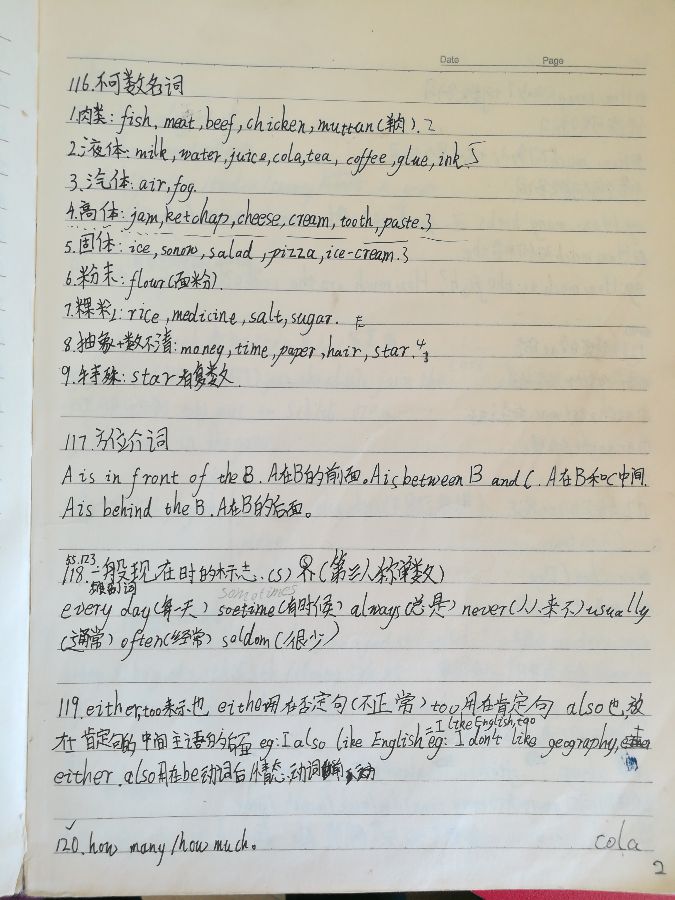 Date Page
116.不可数名词
1.肉类:fish,meat,beef,chicken,muttan(羊肉).2
2.液体:milk,water,juice,cola,tea, coffee,glue,ink.5
3.汽体:air,fog.
4.膏体:jam,ketchap,cheese,cream,tooth,paste.3
5.固体:ice,sonow,salad,pizza,ice-cream.3
6.粉末:flour(面粉).
7.粿粒:rice,medicine,salt,sugar.
8.抽象+数不清:money,time,paper,hair,star.4
9.特殊:star有复数.
117.方位介词
A is in front of the B.A在B的前面。A is between B and C.A在B和C中间.
A is behind the B.A在B的后面。
55.123
118.一般现在时的标志.(S)
(第三人称单数)
频度副词
sometimes
every day(每一天) soetime(有时候) always(总是) never(从来不) usually
(通常) often(经常) soldom(很少)
119.either,too表示也 eithe用在否定句(不正常) too用在肯定句 also也,放
=I like English,too
在肯定句的中间主语的后面 eg:I also like English eg: I don't like geography,
either.also用在be动词后情态动词
120.how many/how much。
cola
2